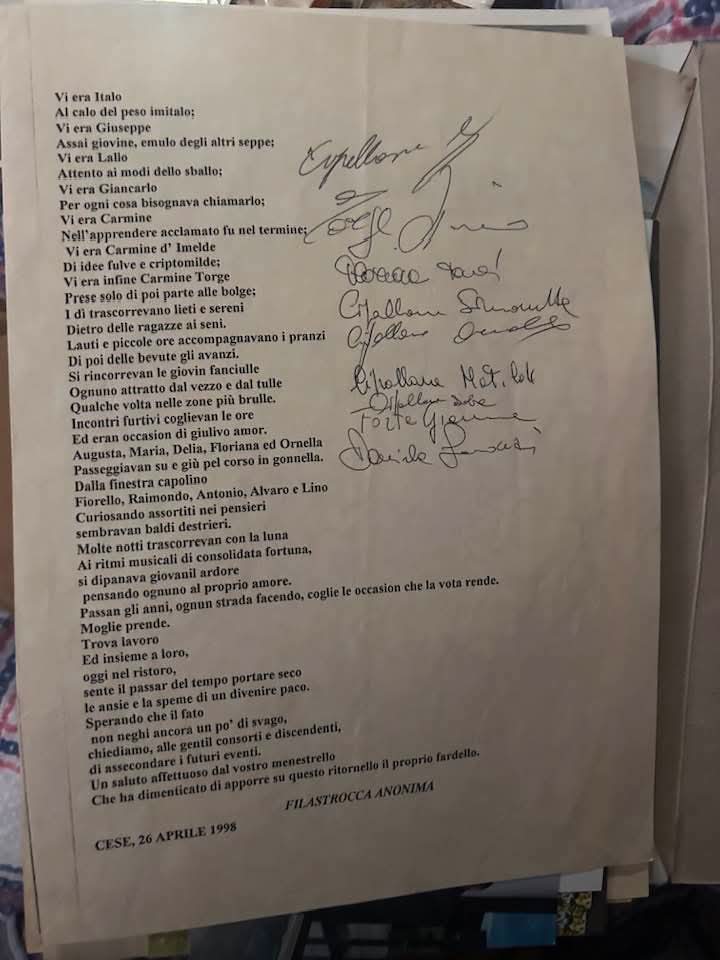 Vi era Italo
Al calo del peso imitalo;
Vi era Giuseppe
Assai giovine, emulo degli altri seppe;
Vi era Lallo
Attento ai modi dello sballo;
Vi era Giancarlo
Per ogni cosa bisognava chiamarlo;
Vi era Carmine
Nell'apprendere acclamato fu nel termine;
Vi era Carmine d' Imelde
Di idee fulve e criptomilde;
Vi era infine Carmine Torge
Prese solo di poi parte alle bolge;
I dì trascorrevano lieti e sereni
Dietro delle ragazze ai seni.
Lauti e piccole ore accompagnavano i pranzi
Di poi delle bevute gli avanzi.
Si rincorrevan le giovin fanciulle
Ognuno attratto dal vezzo e dal tulle
Qualche volta nelle zone più brulle.
Incontri furtivi coglievan le ore
Ed eran occasion di giulivo amor.
Augusta, Maria, Delia, Floriana ed Ornella
Passeggiavan su e giù pel corso in gonnella.
Dalla finestra capolino
Fiorello, Raimondo, Antonio, Alvaro e Lino
Curiosando assortiti nei pensieri
sembravan baldi destrieri.
Molte notti trascorrevan con la luna
Ai ritmi musicali di consolidata fortuna,
si dipanava giovanil ardore
pensando ognuno al proprio amore.
Passan gli anni, ognun strada facendo, coglie le occasion che la vota rende.
Moglie prende.
Trova lavoro
Ed insieme a loro,
oggi nel ristoro,
sente il passar del tempo portare seco
le ansie e la speme di un divenire paco.
Sperando che il fato
non neghi ancora un po' di svago,
chiediamo, alle gentil consorti e discendenti,
di assecondare i futuri eventi.
Un saluto affettuoso dal vostro menestrello
Che ha dimenticato di apporre su questo ritornello il proprio fardello.
FILASTROCCA ANONIMA
CESE, 26 APRILE 1998
Cipollone Simonetta
Cipollone
Cipollone Matilde
Cipollone
Torge Gianna
Daniela